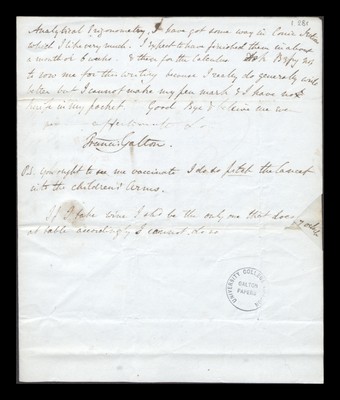 Analytical Trigonometry, I have got some way in Conic Sects
which I like very much. I expect to have finished them in about
a month or 6 weeks. & then for the Calculus
to
me for this writing because I really do generally write
better but I cannot make my pen mark & I have not
knife in my pocket Good Bye & believe me
affectionate
Francis Galton.
PS. you ought to see me vaccinate I do so the lancet
into the children's Arms.
If I take wine I shd be the only one that does
at table accordingly I cannot do so
UNIVERSITY COLLEGE
GALTON
PAPERS